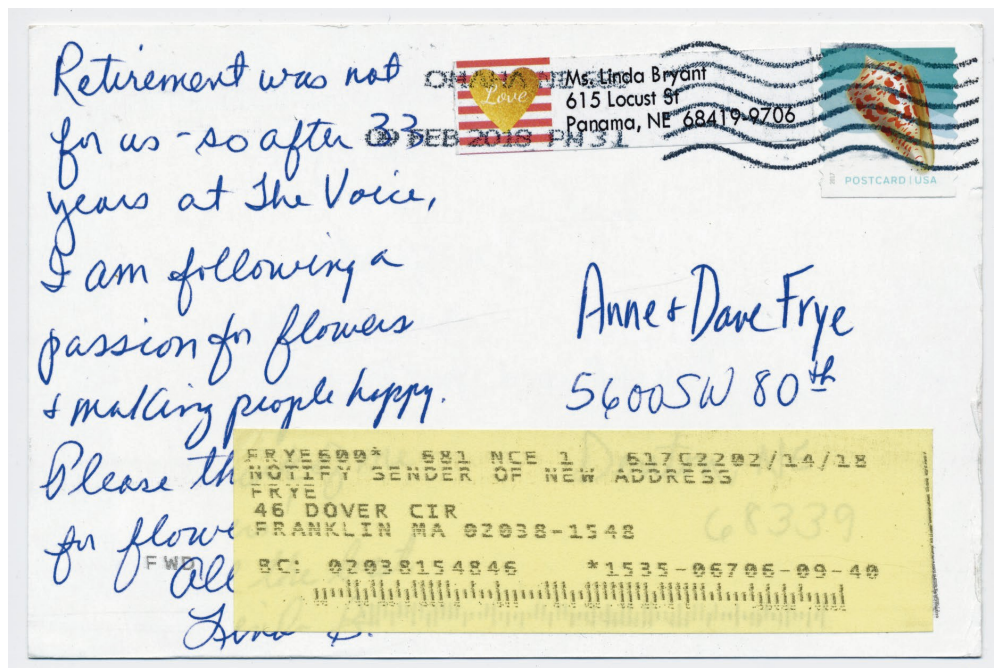 Retirement was not
for us - so after 33
years at The Voice,
I am following a
passion for flowers
& making people happy.
Please th
for flowe
All
Linda B.
OMAHA NE
09 FEB 2018 PM 3 L
Love
Ms. Linda Bryant
615 Locust St
Panama, NE 68419-9706
POSTCARD | USA
Anne & Dave Frye
5600 SW 80th
68339
FRYE600* 681 NCE 1 617C2202/14/18
NOTIFY SENDER OF NEW ADDRESS
FRYE
46 DOVER CIR
FRANKLIN MA 02038-1548
BC: 02038154846 *1535-06706-09-40
FWD